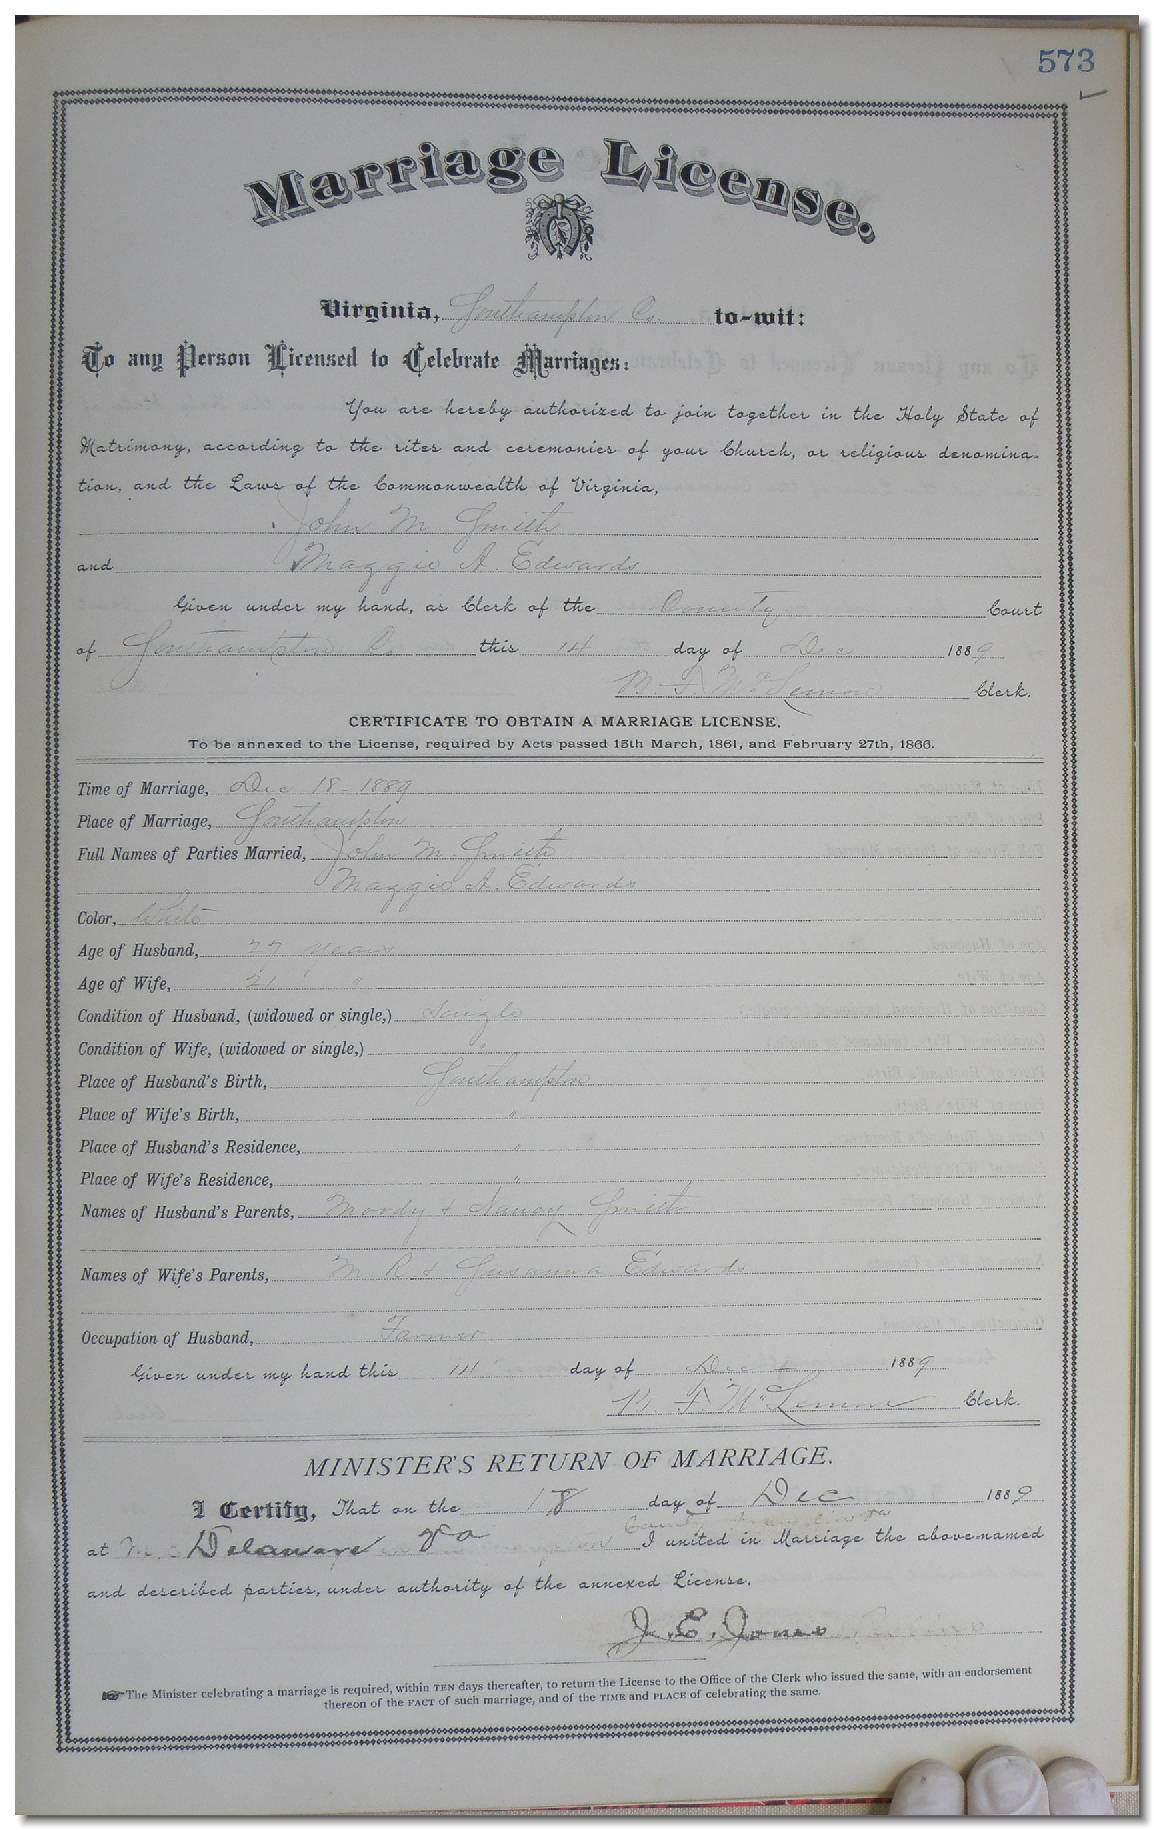 573
Marriage License.
Virginia, Southampton Co. to-wit:
To any Person Licensed to Celebrate Marriages:
You are hereby authorized to join together in the Holy State of
Matrimony, according to the rites and ceremonies of your Church, or religious denomina-
tion, and the Laws of the Commonwealth of Virginia,
John M Smith
and Maggie A. Edwards
Given under my hand, as Clerk of the County Court
of Southampton Co. this 14 day of Dec 1889
B. F. McLemore Clerk.
CERTIFICATE TO OBTAIN A MARRIAGE LICENSE.
To be annexed to the License, required by Acts passed 15th March, 1861, and February 27th, 1866.
Time of Marriage, Dec 18 - 1889
Place of Marriage, Southampton
Full Names of Parties Married, John M. Smith
Maggie A. Edwards
Color, White
Age of Husband, 27 years
Age of Wife, 21 "
Condition of Husband, (widowed or single,) Single
Condition of Wife, (widowed or single,) "
Place of Husband's Birth, Southampton
Place of Wife's Birth, "
Place of Husband's Residence, "
Place of Wife's Residence, "
Names of Husband's Parents, Moody & Nancy Smith
Names of Wife's Parents, M. R & Susanna Edwards
Occupation of Husband, Farmer
Given under my hand this 14 day of Dec 1889
B. F. McLemore Clerk.
MINISTER'S RETURN OF MARRIAGE.
I Certify, That on the 18 day of Dec 1889
at Delaware Va I united in Marriage the above-named
and described parties, under authority of the annexed License.
J. E. Jones
☞The Minister celebrating a marriage is required, within TEN days thereafter, to return the License to the Office of the Clerk who issued the same, with an endorsement
thereon of the FACT of such marriage, and of the TIME and PLACE of celebrating the same.